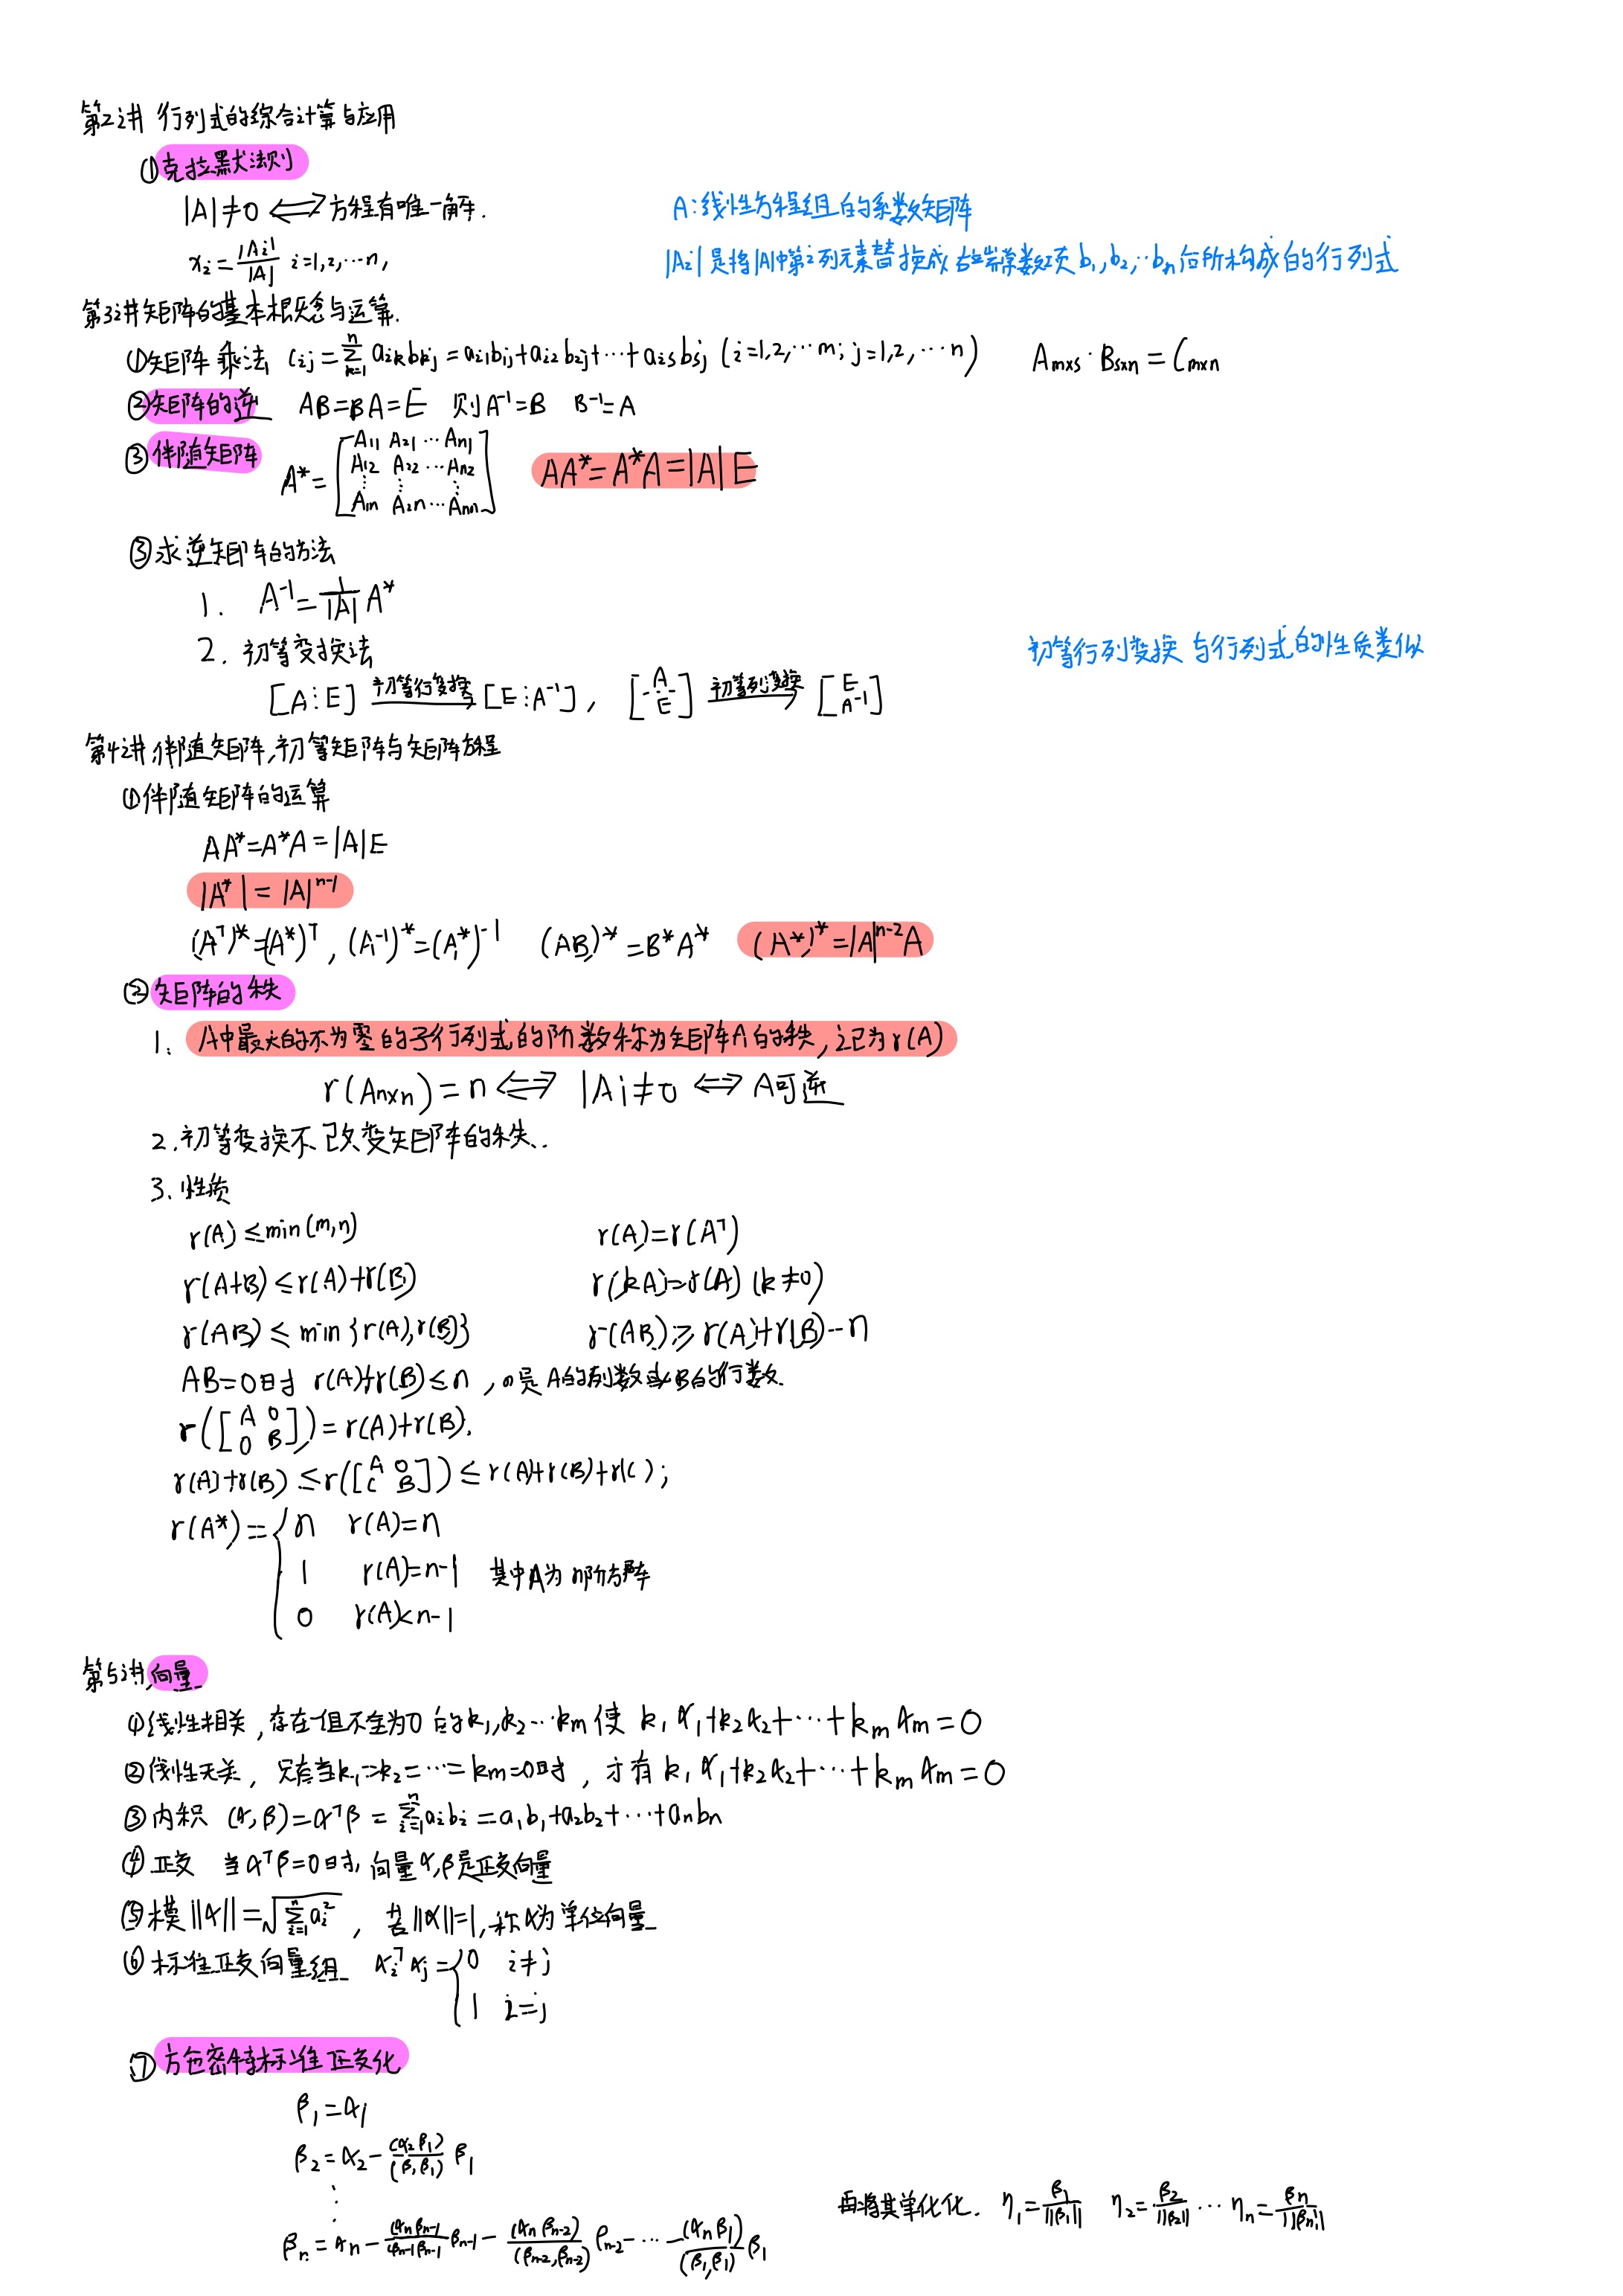 第2讲 行列式的综合计算与应用
①克拉默法则
|A|≠0 ⟺ 方程有唯一解. A:线性方程组的系数矩阵
x_i = |A_i|/|A| i=1,2,⋯n, |A_i|是将|A|中第i列元素替换成右端常数项 b₁,b₂,⋯b_n后所构成的行列式
第3讲矩阵的基本概念与运算.
①矩阵乘法 C_ij = Σ_{k=1}^{n} a_ik b_kj = a_i1 b_1j + a_i2 b_2j + ⋯ + a_is b_sj (i=1,2,⋯m; j=1,2,⋯n) A_{m×s}·B_{s×n} = C_{m×n}
②矩阵的逆 AB=BA=E 则A⁻¹=B B⁻¹=A
③伴随矩阵 A* = [A₁₁ A₂₁ ⋯ A_n1; A₁₂ A₂₂ ⋯ A_n2; ⋮ ⋮ ⋮; A_1n A_2n ⋯ A_nn] AA*=A*A=|A|E
③求逆矩阵的方法
1. A⁻¹ = 1/|A| A*
2. 初等变换法 初等行列变换 与行列式的性质类似
[A⋮E] 初等行变换→ [E⋮A⁻¹], [A; E] 初等列变换→ [E; A⁻¹]
第4讲,伴随矩阵,初等矩阵与矩阵方程
①伴随矩阵的运算
AA*=A*A=|A|E
|A*|=|A|ⁿ⁻¹
(Aᵀ)*=(A*)ᵀ, (A⁻¹)*=(A*)⁻¹ (AB)*=B*A* (A*)*=|A|ⁿ⁻²A
②矩阵的秩
1. A中最大的不为零的子行列式的阶数称为矩阵A的秩,记为r(A)
r(A_{n×n})=n ⟺ |A|≠0 ⟺ A可逆
2.初等变换不改变矩阵的秩.
3.性质
r(A)≤min(m,n) r(A)=r(Aᵀ)
r(A+B)≤r(A)+r(B) r(kA)=r(A) (k≠0)
r(AB)≤min{r(A),r(B)} r(AB)≥r(A)+r(B)-n
AB=0时 r(A)+r(B)≤n ,n是A的列数或B的行数.
r([A 0; 0 B])=r(A)+r(B).
r(A)+r(B)≤r([A 0; C B])≤r(A)+r(B)+r(C);
r(A*)={ n r(A)=n
1 r(A)=n-1 其中A为n阶方阵
0 r(A)<n-1
第5讲,向量
①线性相关,存在一组不全为0的k₁,k₂⋯k_m使 k₁α₁+k₂α₂+⋯+k_mα_m=0
②线性无关, 只有当k₁=k₂=⋯=k_m=0时, 才有k₁α₁+k₂α₂+⋯+k_mα_m=0
③内积 (α,β)=αᵀβ=Σ_{i=1}^{n} a_i b_i = a₁b₁+a₂b₂+⋯+a_nb_n
④正交 当αᵀβ=0时,向量α,β是正交向量
⑤模‖α‖=√(Σ_{i=1}^{n} a_i²), 若‖α‖=1,称α为单位向量
⑥标准正交向量组 α_iᵀα_j={ 0 i≠j
1 i=j
⑦方色密特标准正交化
β₁=α₁
β₂=α₂-(α₂β₁)/(β₁β₁) β₁
⋮
再将其单化化. η₁=β₁/‖β₁‖ η₂=β₂/‖β₂‖ ⋯ η_n=β_n/‖β_n‖
β_n=α_n-(α_nβ_{n-1})/(β_{n-1}β_{n-1}) β_{n-1}-(α_nβ_{n-2})/(β_{n-2},β_{n-2}) β_{n-2}-⋯-(α_nβ₁)/(β₁,β₁) β₁